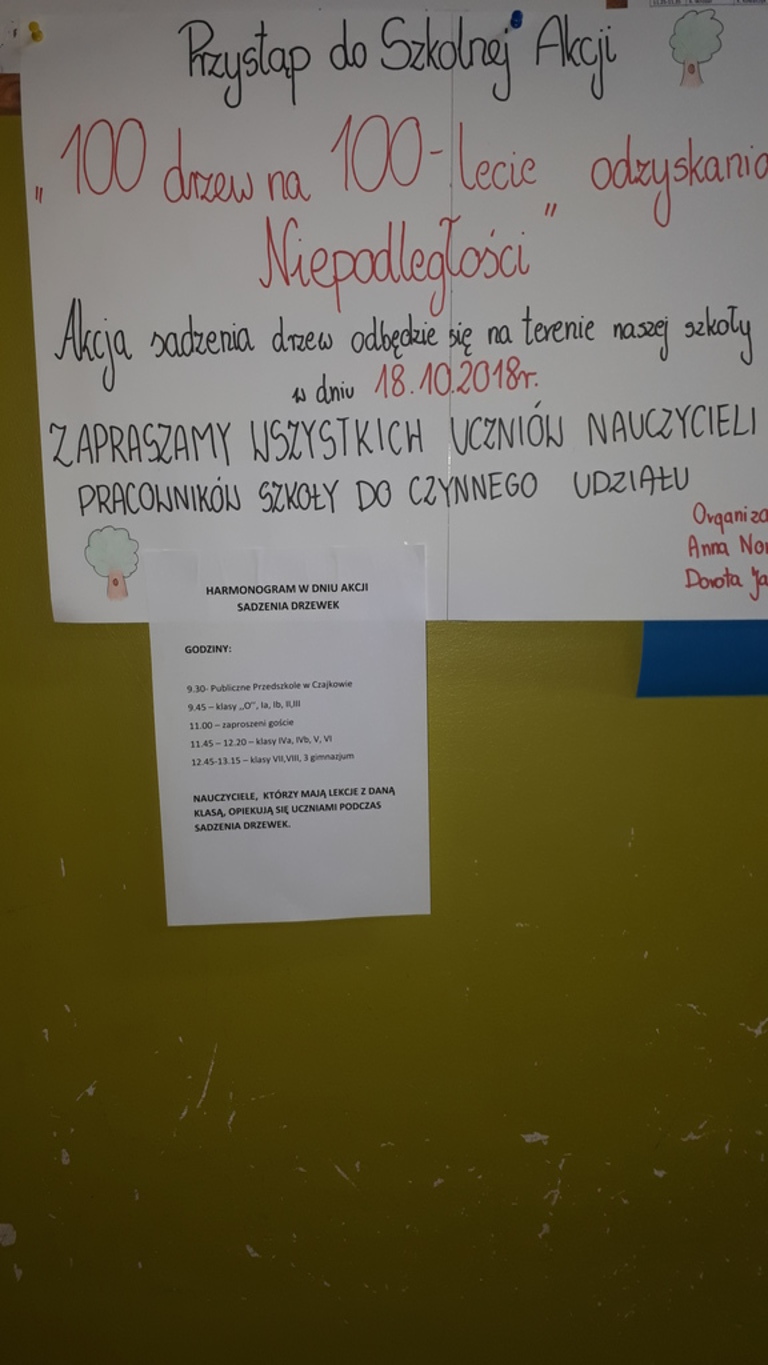 Przystąp do Szkolnej Akcji
„100 drzew na 100-lecie odzyskania
Niepodległości”
Akcja sadzenia drzew odbędzie się na terenie naszej szkoły
w dniu 18.10.2018r.
ZAPRASZAMY WSZYSTKICH UCZNIÓW NAUCZYCIELI
PRACOWNIKÓW SZKOŁY DO CZYNNEGO UDZIAŁU
Organiza
Anna No
Dorota Ja
HARMONOGRAM W DNIU AKCJI
SADZENIA DRZEWEK
GODZINY:
9.30- Publiczne Przedszkole w Czajkowie
9.45 – klasy „O”, Ia, Ib, II,III
11.00 – zaproszeni goście
11.45 – 12.20 – klasy IVa, IVb, V, VI
12.45-13.15 – klasy VII,VIII, 3 gimnazjum
NAUCZYCIELE, KTÓRZY MAJĄ LEKCJE Z DANĄ
KLASĄ, OPIEKUJĄ SIĘ UCZNIAMI PODCZAS
SADZENIA DRZEWEK.